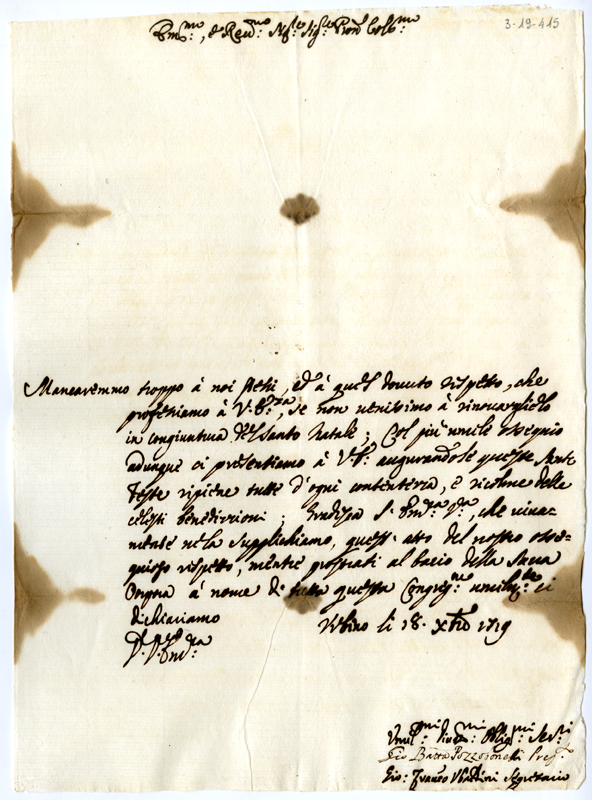 3-19-415
Em.mo, e Reu.mo Sig.r Sig.r Pron Col.mo
Mancaremmo troppo à noi stessi, ed à quel douuto rispetto, che
professiamo à V. E.za, se non uenissimo à rinouarglielo
in congiuntura del Santo Natale; Col più umile ossequio
adunque ci presentiamo à V. E. augurandole queste Sante
Feste ripiene tutte d'ogni contentezza, e ricolme delle
celesti benedizzioni; Gradisca l'Em.za V.ra, che uiua=
mente ne la supplichiamo, quest'atto del nostro osse=
quioso rispetto, mentre prostrati al bacio della Sacra
Porpora à nome di tutta questa Congreg.ne umilm.te ci
dichiariamo
Vrbino li 18. Xbre 1719
D. V. Em.za
Vmil.mi Diu.mi Oblig.mi Ser.ri
Gio Batta Pres.
Gio: Franco Segretario